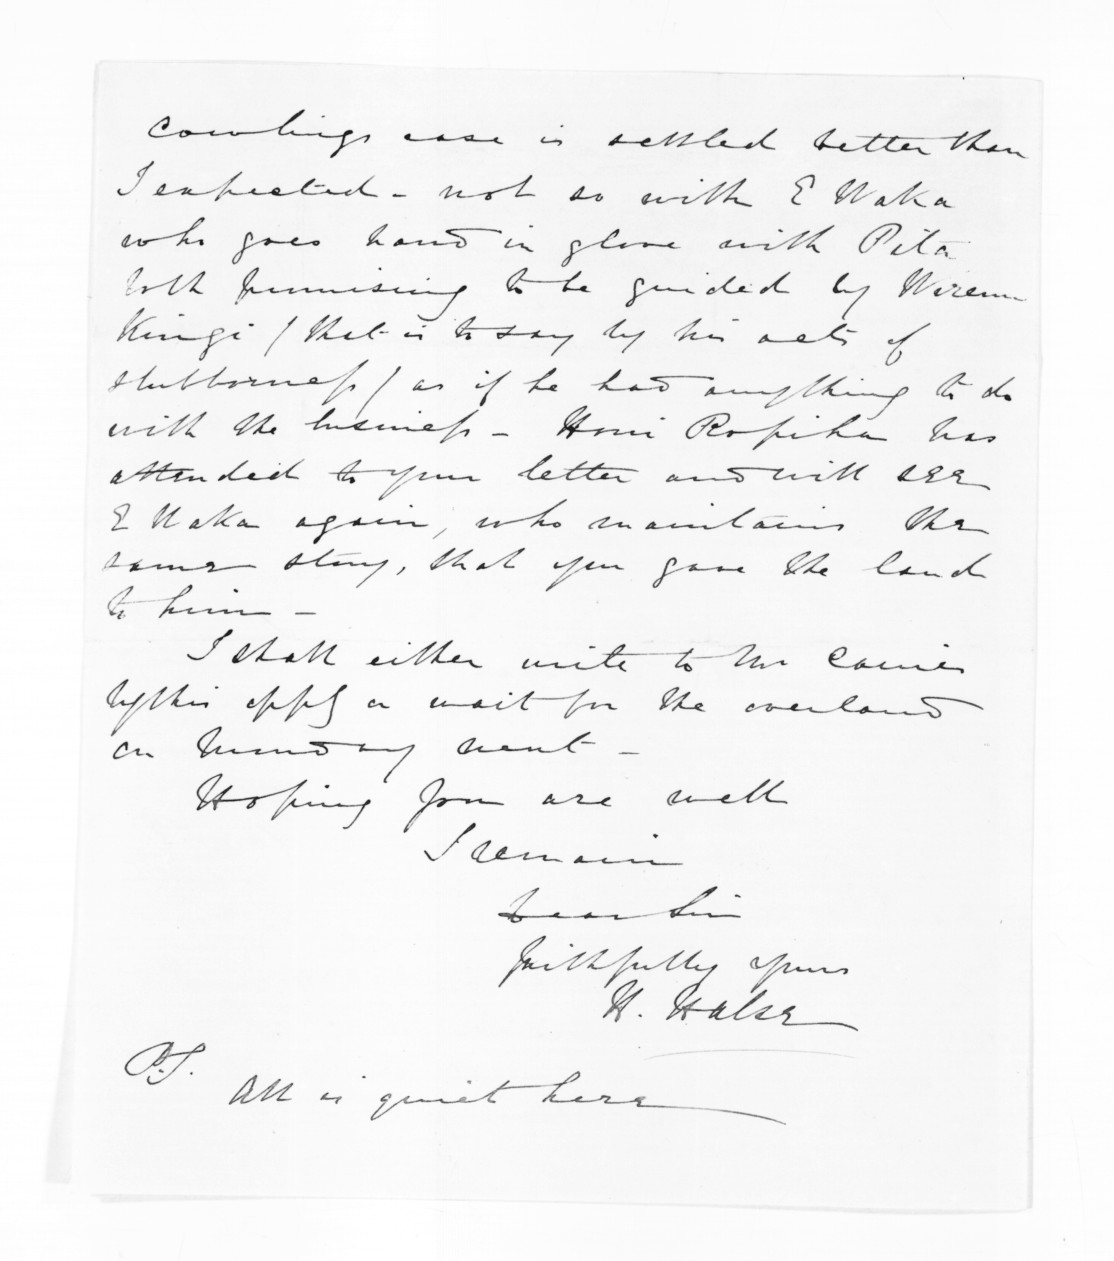 Cowlings case is settled better than
I expected - not so with E Waka
who goes hand in glove with Pita
both promising to be guided by Wiremu
Kingi / that is to say by his acts of
stubborness / as if he had anything to do
with the business - Honi Ropiha has
attended to your letter and will see
E Waka again, who maintains the
same story, that you gave the land
to him -
I shall either write to Mr
by this oppy or wait for the overland
on Monday next -
Hoping you are well
I remain
Dear Sir
Faithfully yours
H. Halse
P.S.
All is quiet here